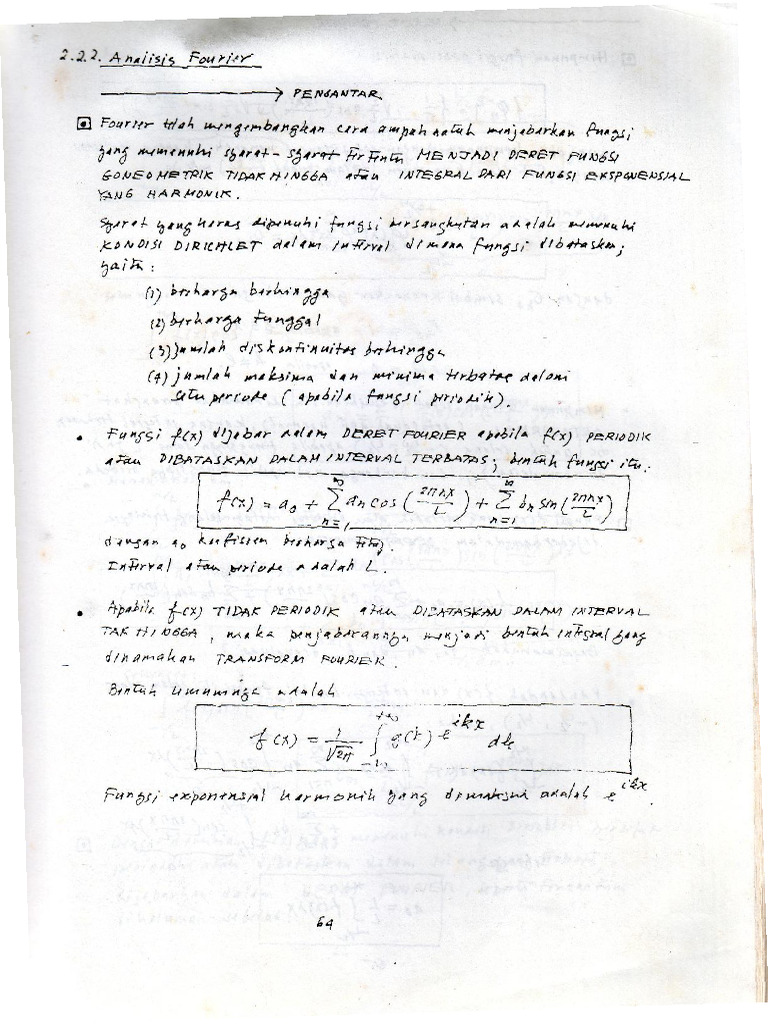 2.2.2. Analisis Fourier
→ PENGANTAR
Fourier telah mengembangkan cara ampuh untuk menjabarkan fungsi
yang memenuhi syarat-syarat tertentu MENJADI DERET FUNGSI
GONEOMETRIK TIDAK HINGGA atau INTEGRAL DARI FUNGSI EKSPONENSIAL
YANG HARMONIK.
Syarat yang harus dipenuhi fungsi bersangkutan adalah memenuhi
KONDISI DIRICHLET dalam interval dimana fungsi dibataskan;
yaitu:
(1) berharga berhingga
(2) berharga tunggal
(3) jumlah diskontinuitas berhingga
(4) jumlah maksima dan minima terbatas dalam
satu periode (apabila fungsi periodik).
• Fungsi f(x) dijabar dalam DERET FOURIER apabila f(x) PERIODIK
atau DIBATASKAN DALAM INTERVAL TERBATAS; bentuk fungsi itu:
f(x) = a₀ + ∑_{n=1}^{∞} aₙ cos (2πnx/L) + ∑_{n=1}^{∞} bₙ sin (2πnx/L)
dengan a₀ koefisien berharga tetap.
Interval atau periode adalah L.
• Apabila f(x) TIDAK PERIODIK atau DIBATASKAN DALAM INTERVAL
TAK HINGGA, maka penjabarannya menjadi bentuk integral yang
dinamakan TRANSFORM FOURIER.
Bentuk umumnya adalah
f(x) = 1/√2π ∫_{-∞}^{+∞} g(k) e^{ikx} dk
Fungsi exponensial harmonik yang dimaksud adalah e^{ikx}.
64